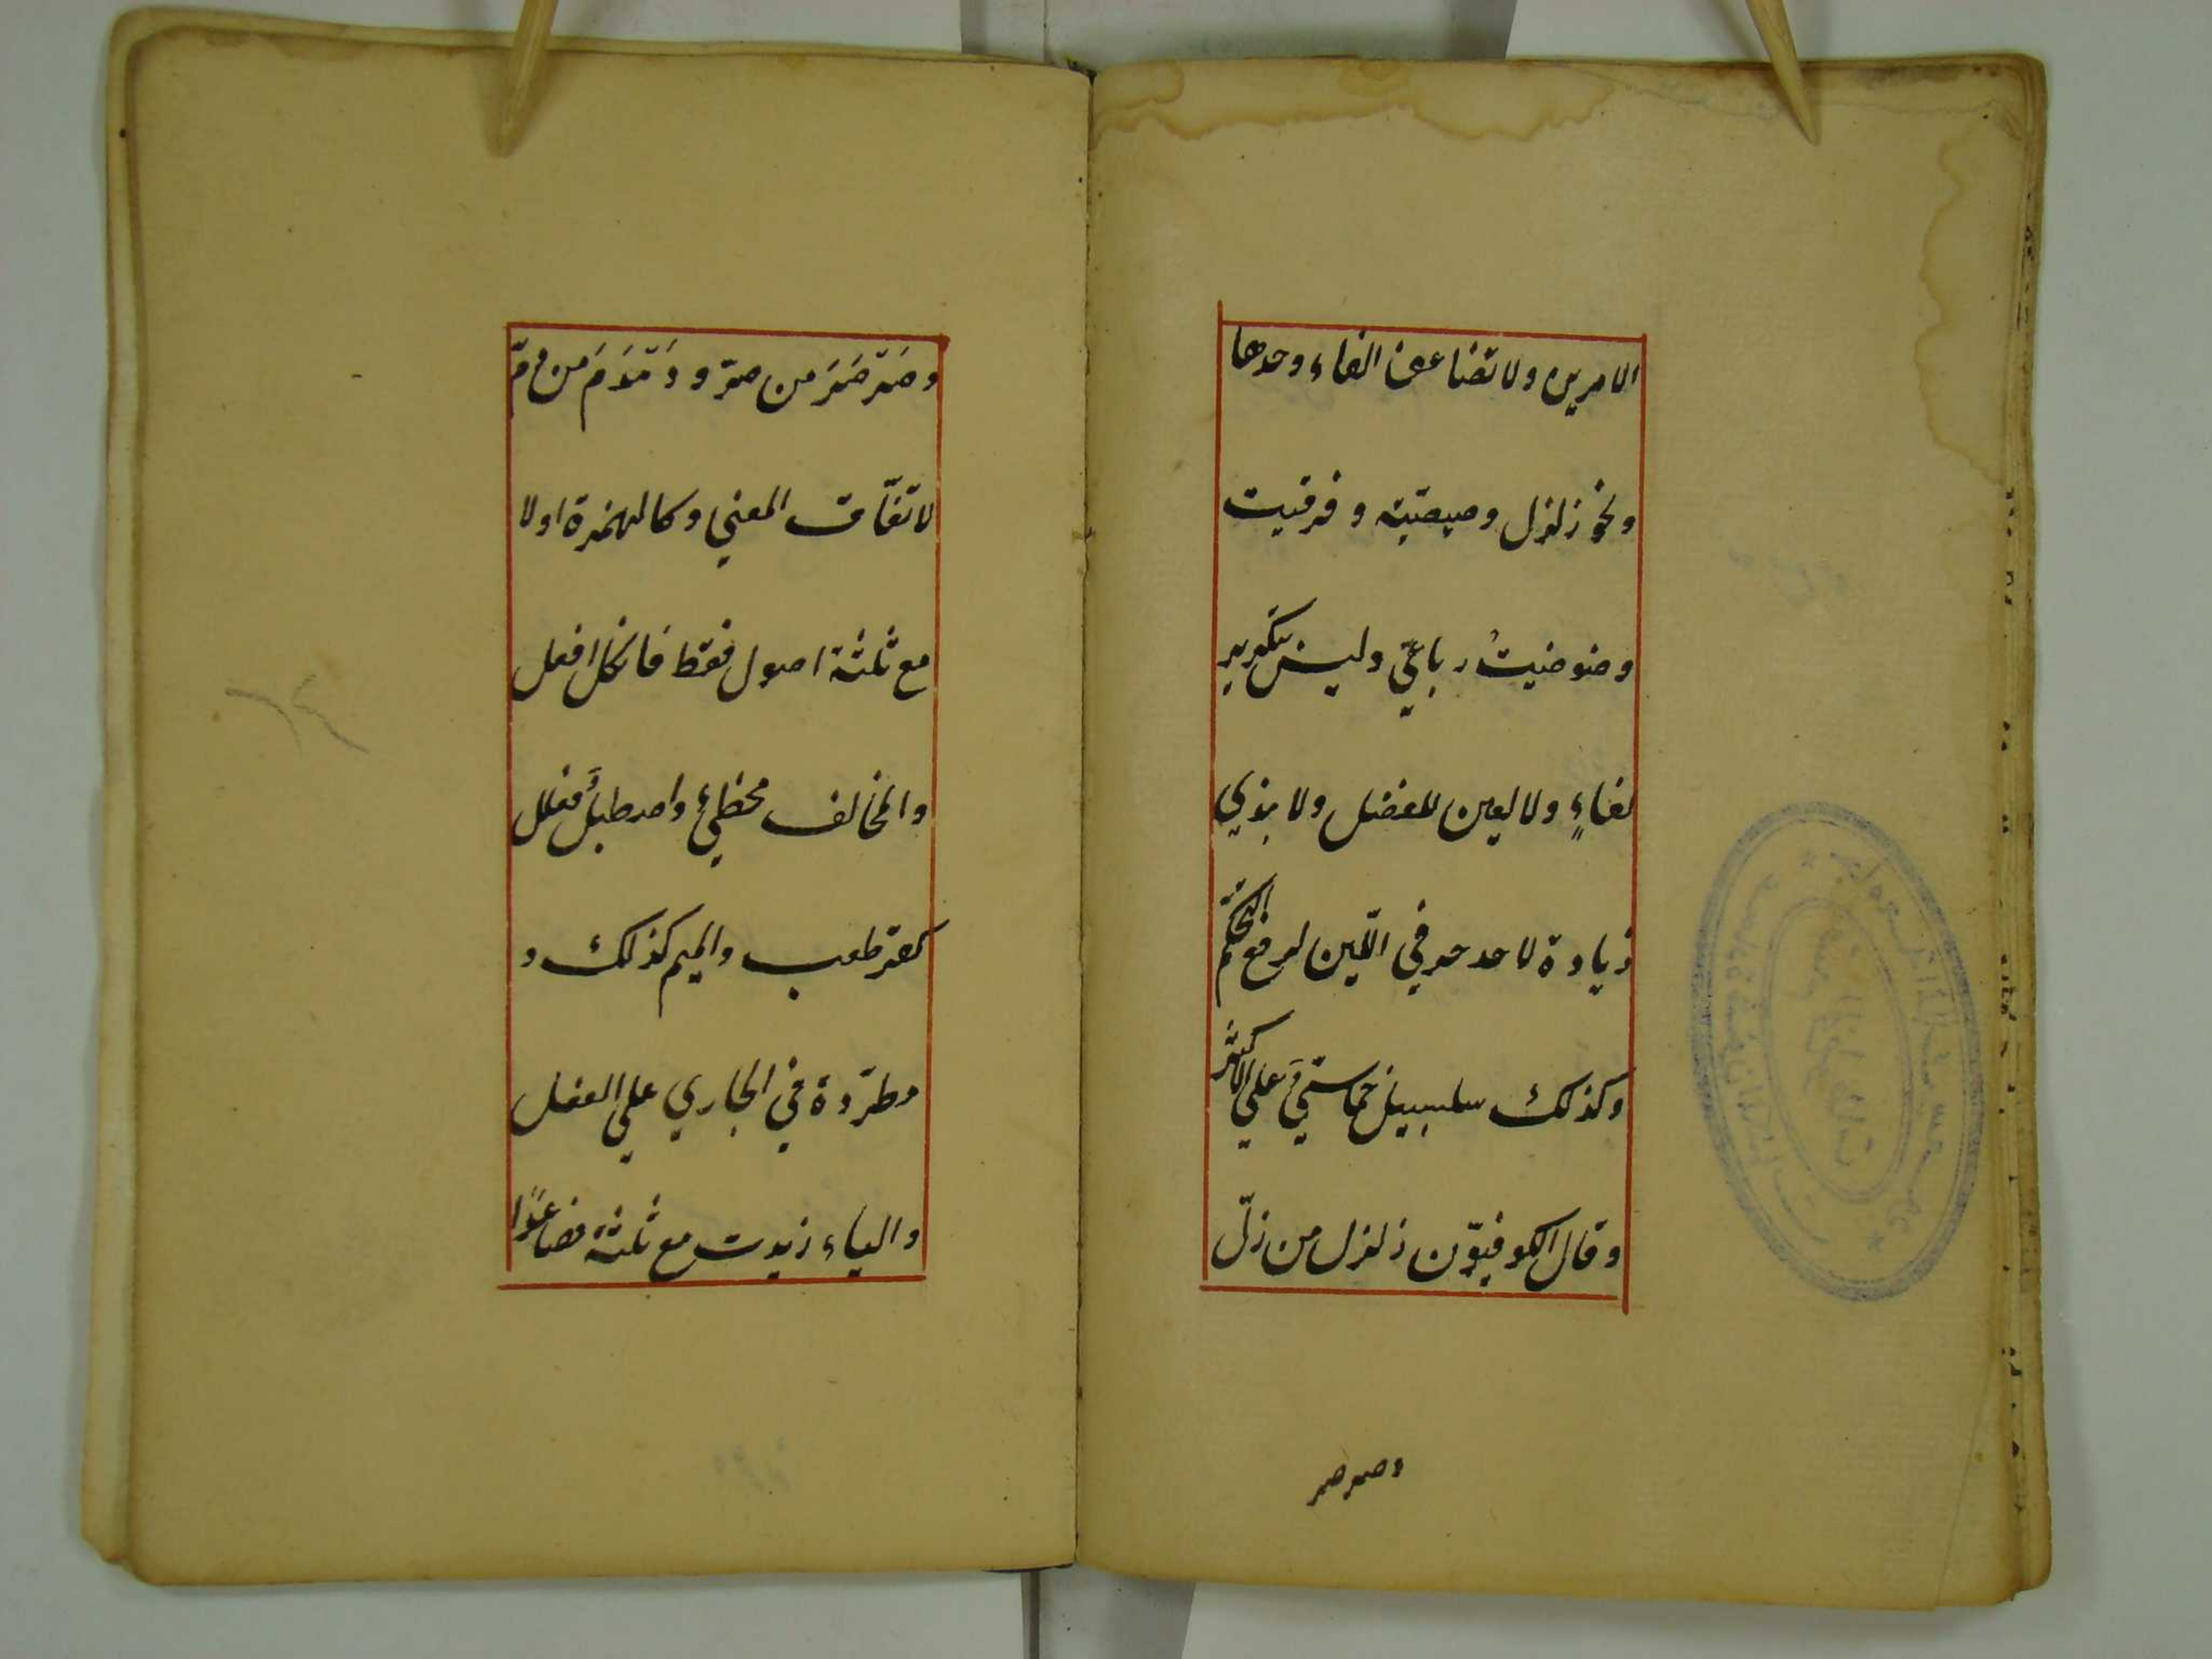 الامرين ولا تضاعف الفاء وحدها
ونحو زلزل وصيصية وقرقيت
وضوضيت رباعيّ وليس بتكرير
لفاءٍ ولا لعين للفضل ولا بذي
زيادة لاحد حرفي اللّين لرفع التحكّم
وكذلك سلسبيل خماسيّ على الاكثر
وقال الكوفيّون زلزل من زلّ
وصرصر
وصَرْصَرَ من صرّ ودَمْدَمَ من دمّ
لاتفاق المعني وكالهمزة اولا
مع ثلثة اصول فقط فافكل افعل
والمخالف مخطئ واصطبل فعلل
كقرطعب والميم كذلك و
مطرّدة في الجاري علي الفعل
والياء زيدت مع ثلثة فصاعدًا